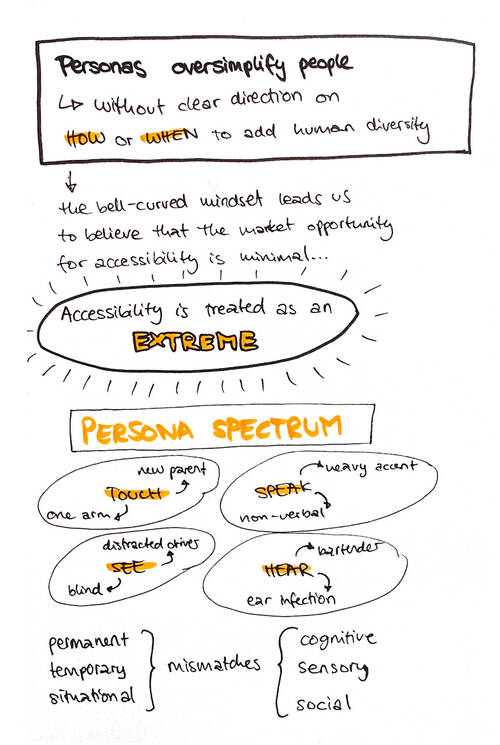 Personas oversimplify people
↳ without clear direction on
HOW or WHEN to add human diversity
↓
the bell-curved mindset leads us
to believe that the market opportunity
for accessibility is minimal...
Accessibility is treated as an
EXTREME
PERSONA SPECTRUM
new parent
TOUCH
one arm
heavy accent
SPEAK
non-verbal
distracted driver
SEE
blind
bartender
HEAR
ear infection
permanent
temporary
situational
mismatches
cognitive
sensory
social